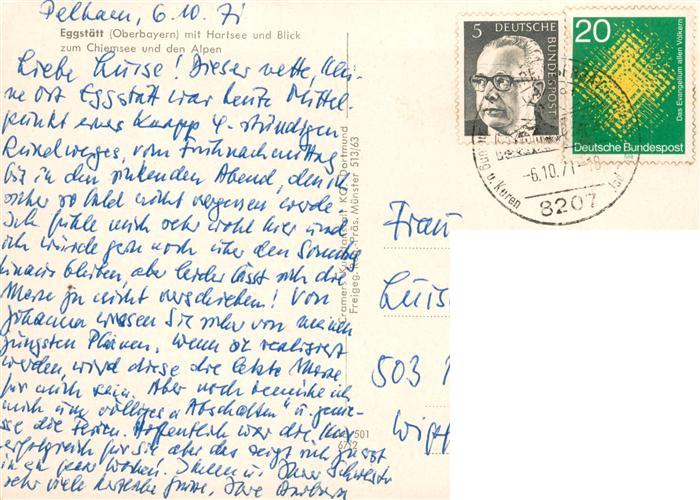 Pelham, 6.10.71
Eggstätt (Oberbayern) mit Hartsee und Blick
zum Chiemsee und den Alpen
Liebe Luise! Dieser nette, klei-
ne Ort Eggstätt war heute Mittel-
punkt eines knapp 4-stündigen
vom Frühnachmittag
bis in den sinkenden Abend, den ich
sicher so bald nicht vergessen werde.
Ich fühle mich sehr wohl hier und
ich würde gern noch über den Sonntag
hinaus bleiben, aber leider lässt sich die
nicht verschieben! Von
Johanna wissen Sie schon von meinen
jüngsten Plänen. Wenn sie realisiert
werden, wird diese die letzte
für mich sein. Aber noch bemühe ich
mich um völliges "Abschalten" u. genies-
se die Ferien. Hoffentlich war die Kur
erfolgreich für Sie, aber das zeigt sich ja erst
in ein paar Wochen. Ihnen u. Ihrer Schwester
sehr viele herzliche Grüsse, Ihre Barbara
Cramers Kunstanstalt KG, Dortmund
Freigeg. Reg. Präs. Münster 513/63
501
5
DEUTSCHE
BUNDESPOST
20
Das Evangelium allen Völkern
Deutsche Bundespost
u. Kuren
-6.10.71-18
8207
Frau
Luis
503